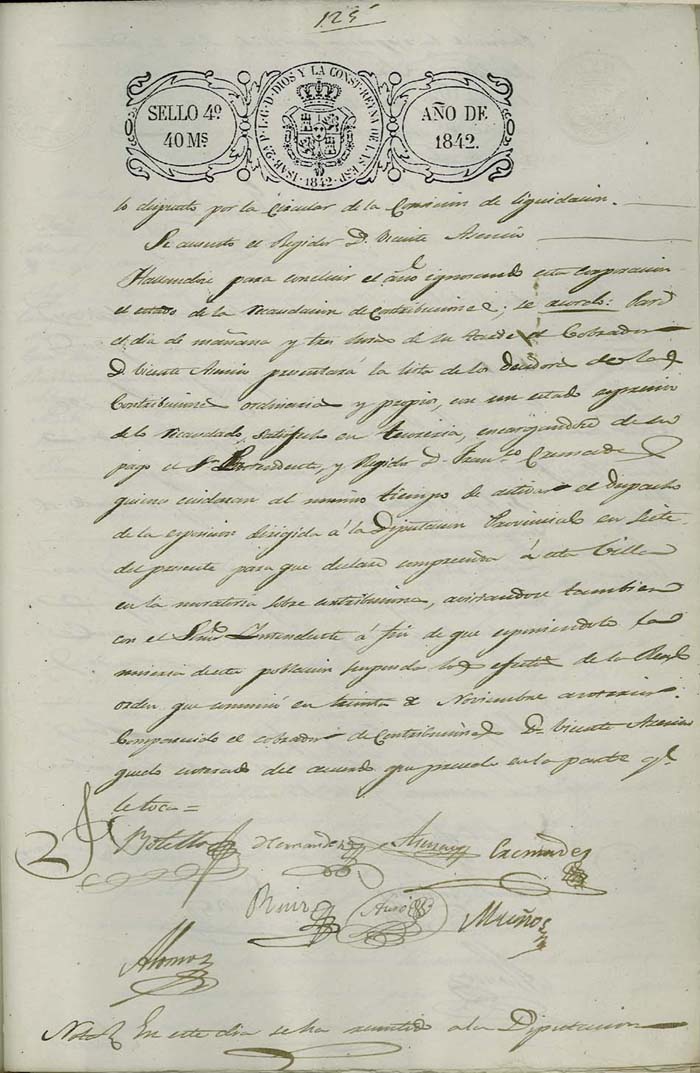 125
SELLO 4º
40 Ms
ISAB. 2A. P. L. G. D. DIOS Y LA CONST. REYNA DE LAS ESP.
1842
AÑO DE
1842.
lo dispuesto por la Circular de la Comision de liquidacion.
Se ausento el Regidor D. Vicente Asencio
Hallandose para concluir el año ignorando esta Corporacion
el estado de la recaudacion de Contribuciones, se acordó: Para
el dia de mañana y tres horas de su tarde el Cobrador
D. Vicente Asencio presentará la lista de los deudores de las
Contribuciones ordinarias y propios, con un estado espresivo
de lo recaudado, satisfecho en tesoreria, encargandose de su
pago el Sr. Presidente, y Regidor D. Franco.
quienes cuidaran al mismo tiempo de activar el despacho
de la esposicion dirigida á la Diputacion Provincial en siete
del presente para que declare comprendida á esta Villa
en la moratoria sobre contribuciones, avistandose tambien
con el Señor Intendente á fin de que esponiendole la
miseria de esta poblacion suspenda los efectos de la Real
orden que comunicó en treinta de Noviembre anterior.
Comparecido el cobrador de Contribuciones D. Vicente Asencio
quedo enterado del acuerdo que precede en la parte q.
le toca =
Botella Hernandez Asencio
Ruiz Muños
Alonso
Nota En este dia se ha remitido a la Diputacion